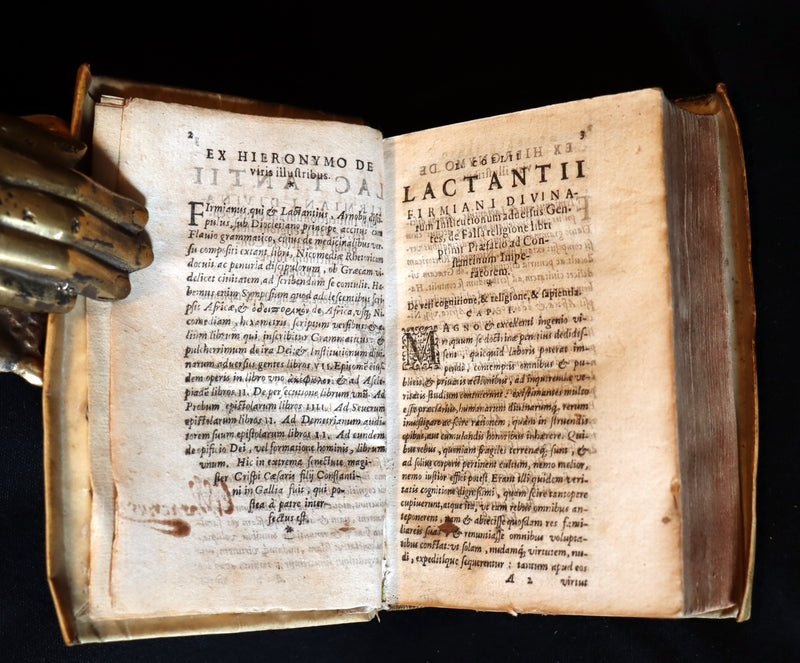 2
EX HIERONYMO DE
viris illustribus.
Firmianus, qui & Lactantius, Arnobij disci-
pulus, sub Diocletiano principe accitus cum
Flauio grammatico, cuius de medicinalibus ver-
su compositi extant libri, Nicomediæ Rhetoricam
docuit ac penuria discipulorum, ob Græcam vi-
delicet ciuitatem, ad scribendum se contulit. Ha-
bemus eius Symposium quod adolescentulus scri-
psit Africæ, & ὁδοιπορικὸν de Africa, vsq; Ni-
comediam, hexametris scriptum versibus, & a-
lium librum qui inscribitur Grammaticus: &
pulcherrimum de ira Dei: & Institutionum diui-
narum aduersus gentes libros VII. Epitomē eius-
dem operis in libro vno
& ad Ascle-
piadē libros II. De persecutione librum vnū. Ad
Probum epistolarum libros IIII. Ad Seuerum
epistolarum libros II. Ad Demetrianum audi-
torem suum epistolarum libros II. Ad eundem
de opificio Dei, vel formatione hominis, librum
vnum. Hic in extrema senectute magi-
ster Crispi Cæsaris filij Constanti-
ni in Gallia fuit, qui po-
stea à patre inter-
fectus est.
3
L. COELII
LACTANTII
FIRMIANI DIVINA-
rum Institutionum aduersus Gen-
tes, de Falsa religione libri
primi Præfatio ad Con-
stantinum Impe-
ratorem.
De veri cognitione, & religione, & sapientia.
CAP. I.
MAGNO & excellenti ingenio vi-
ri quum se doctrinæ penitus dedidis-
sent, quicquid laboris poterat im-
pendi, contemptis omnibus & pu-
blicis, & priuatis actionibus, ad inquirendæ ve-
ritatis studium contulerunt: existimantes multo
esse præclarius, humanarum diuinarumq; rerum
inuestigare ac scire rationem, quàm in struendis
opibus, aut cumulandis honoribus inhærere. Qui-
bus rebus, quoniam fragiles terrenæq; sunt, &
ad solius corporis pertinent cultum, nemo melior,
nemo iustior effici potest. Erant illi quidem veri-
tatis cognitione dignissimi, quam scire tantopere
cupiuerunt, atque ita, vt eam rebus omnibus an-
teponerent, nam & abiecisse quosdam res fami-
liareis suas, & renuntiasse omnibus volupta-
tibus constat: vt solam, nudamq; virtutem, nu-
di, expeditique sequerentur: tantum apud eos
A 2 virtut